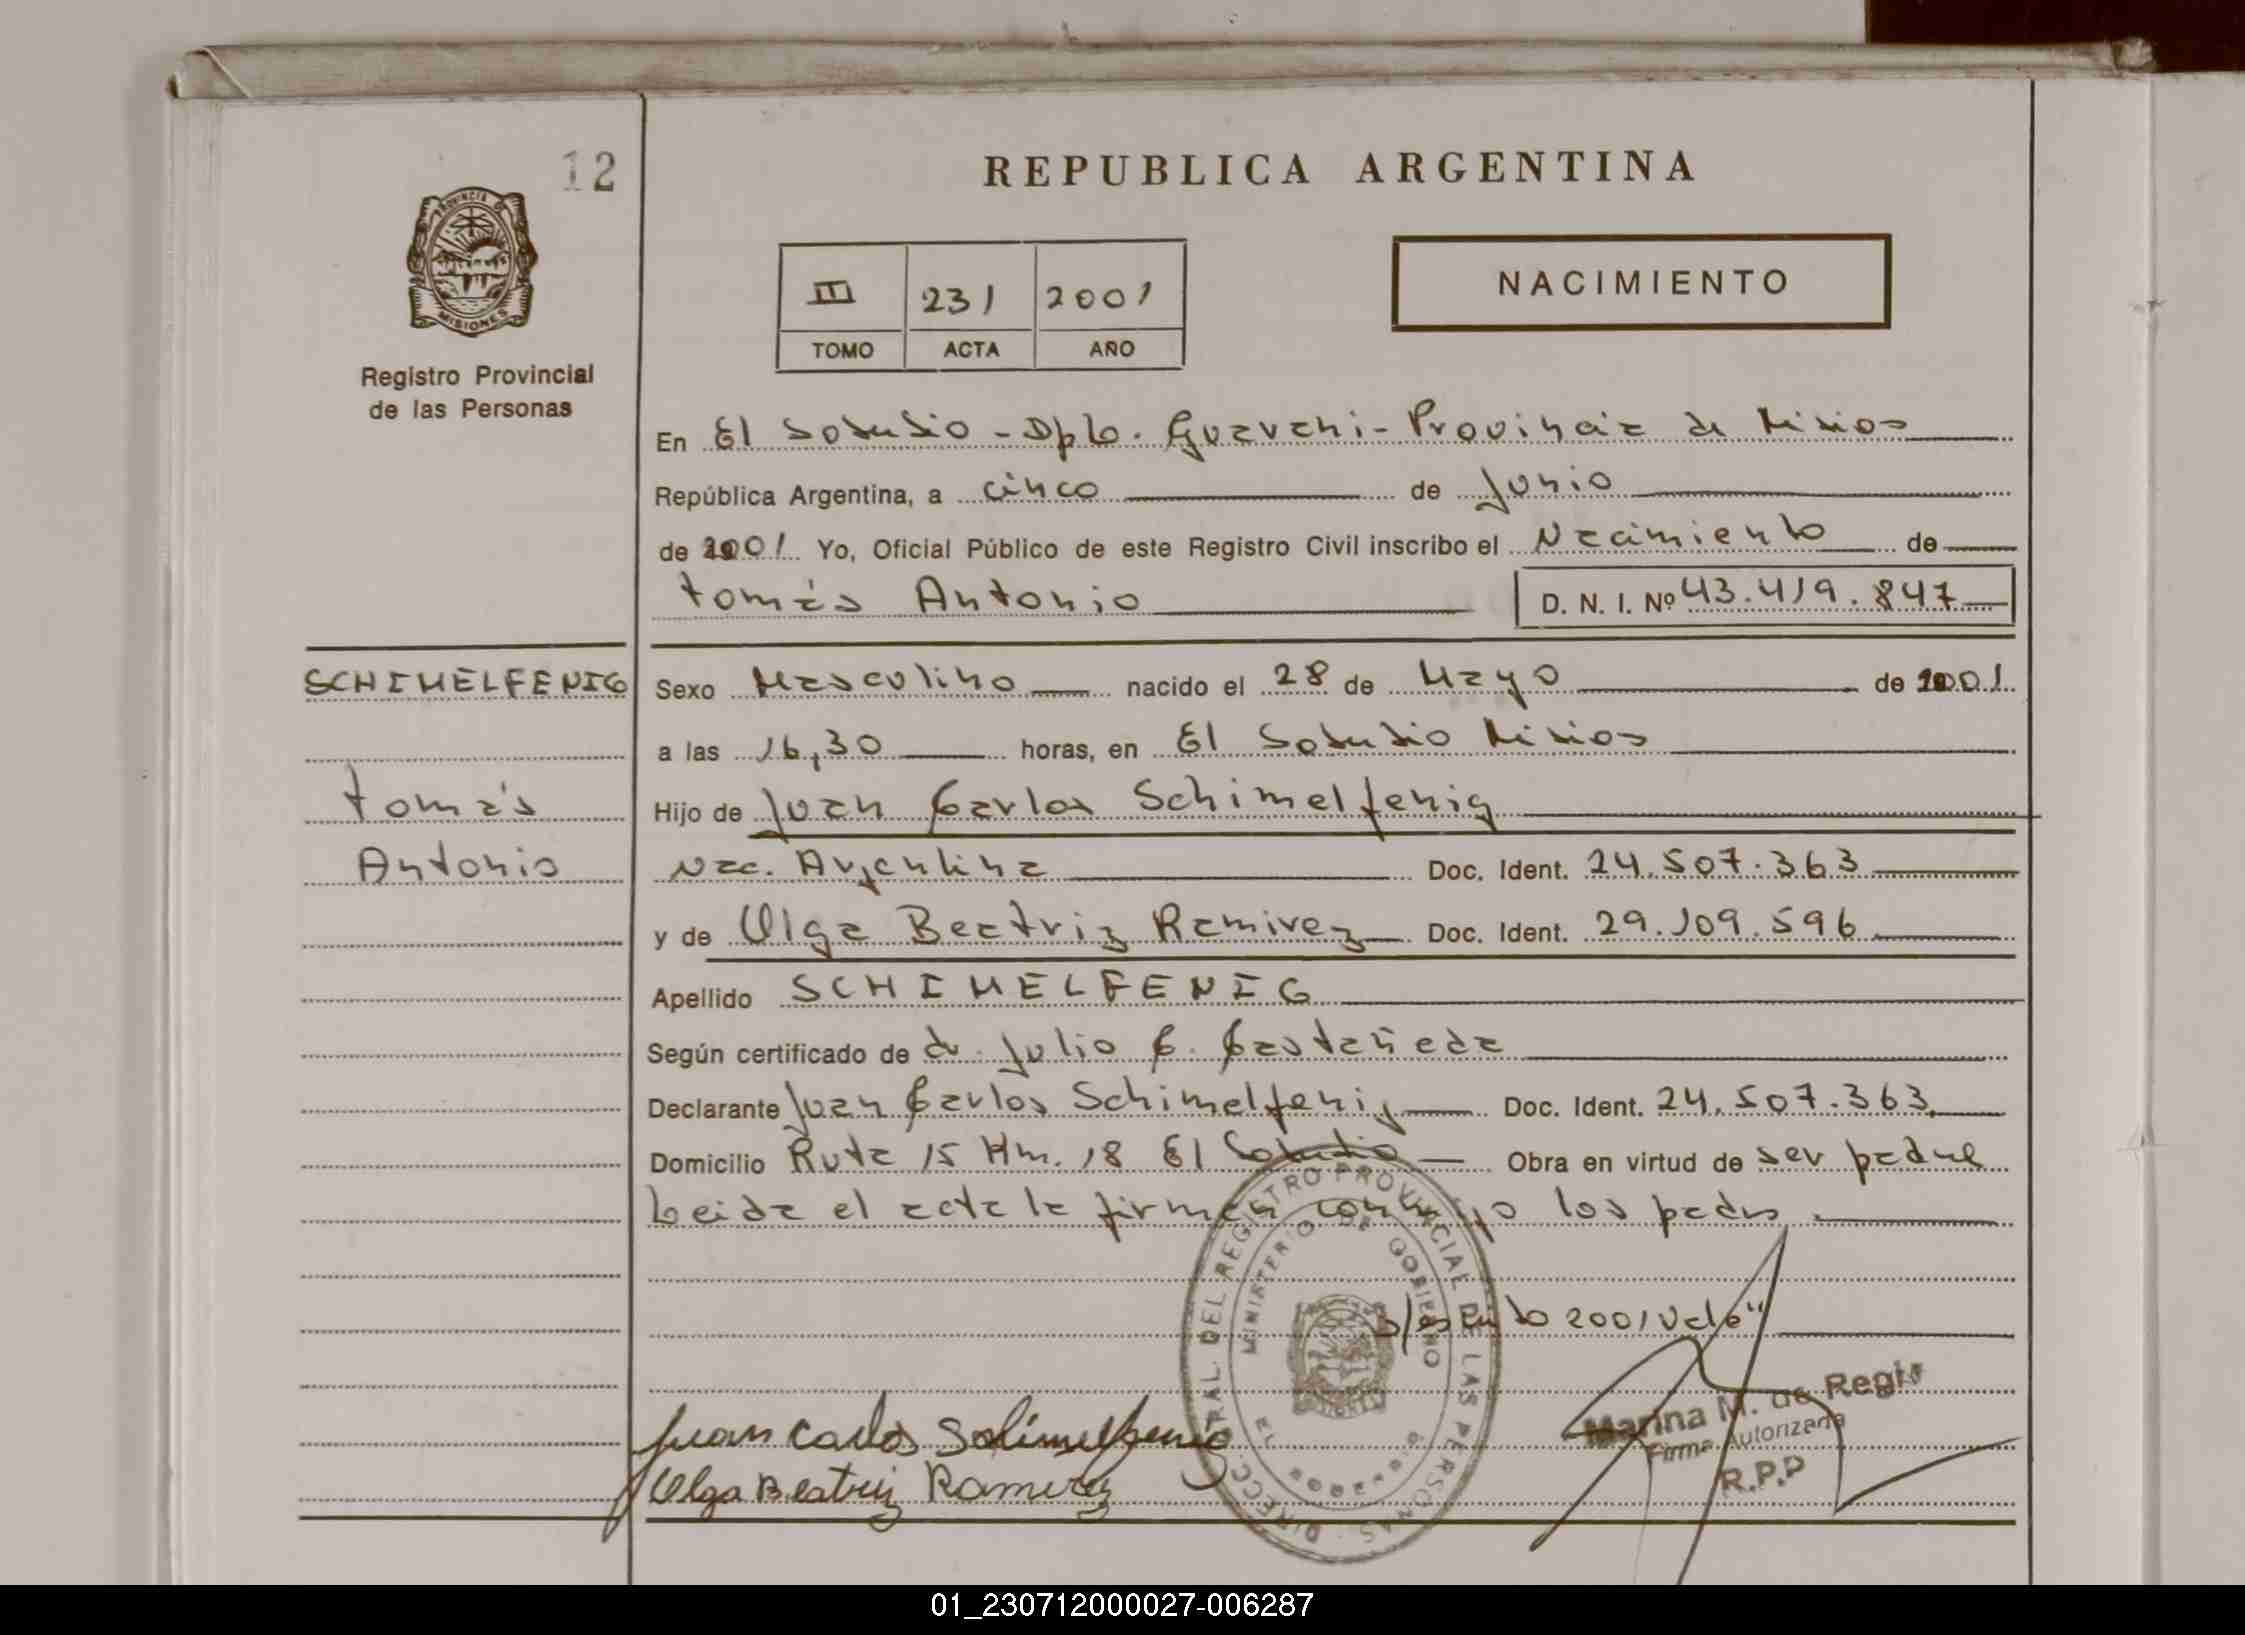 12
REPUBLICA ARGENTINA
PROVINCIA D
MISIONES
Registro Provincial
de las Personas
III 231 2001
TOMO ACTA AÑO
NACIMIENTO
En El Soberbio - Dpto. Guarani - Provincia de Misiones
República Argentina, a cinco de Junio
de 2001 Yo, Oficial Público de este Registro Civil inscribo el Nacimiento de
Tomás Antonio D. N. I. Nº 43.419.847
SCHIMELFENIG
Tomás
Antonio
Sexo Masculino nacido el 28 de Mayo de 2001
a las 16,30 horas, en El Soberbio Misiones
Hijo de Juan Carlos Schimelfenig
Nac. Argentina Doc. Ident. 24.507.363
y de Olga Beatriz Ramirez Doc. Ident. 29.109.596
Apellido SCHIMELFENIG
Según certificado de dr. Julio C. Castañeda
Declarante Juan Carlos Schimelfenig Doc. Ident. 24.507.363
Domicilio Ruta 15 Km. 18 El Soberbio Obra en virtud de ser padre
Leida el acta la firman conmigo los padres
2001 Vale"
Juan Carlos Schimelfenig
Olga Beatriz Ramirez
DIRECC. GRAL. DEL REGISTRO PROVINCIAL DE LAS PERSONAS
MINISTERIO DE GOBIERNO
Marina M. de
Firma Autorizada
R.P.P
01_230712000027-006287